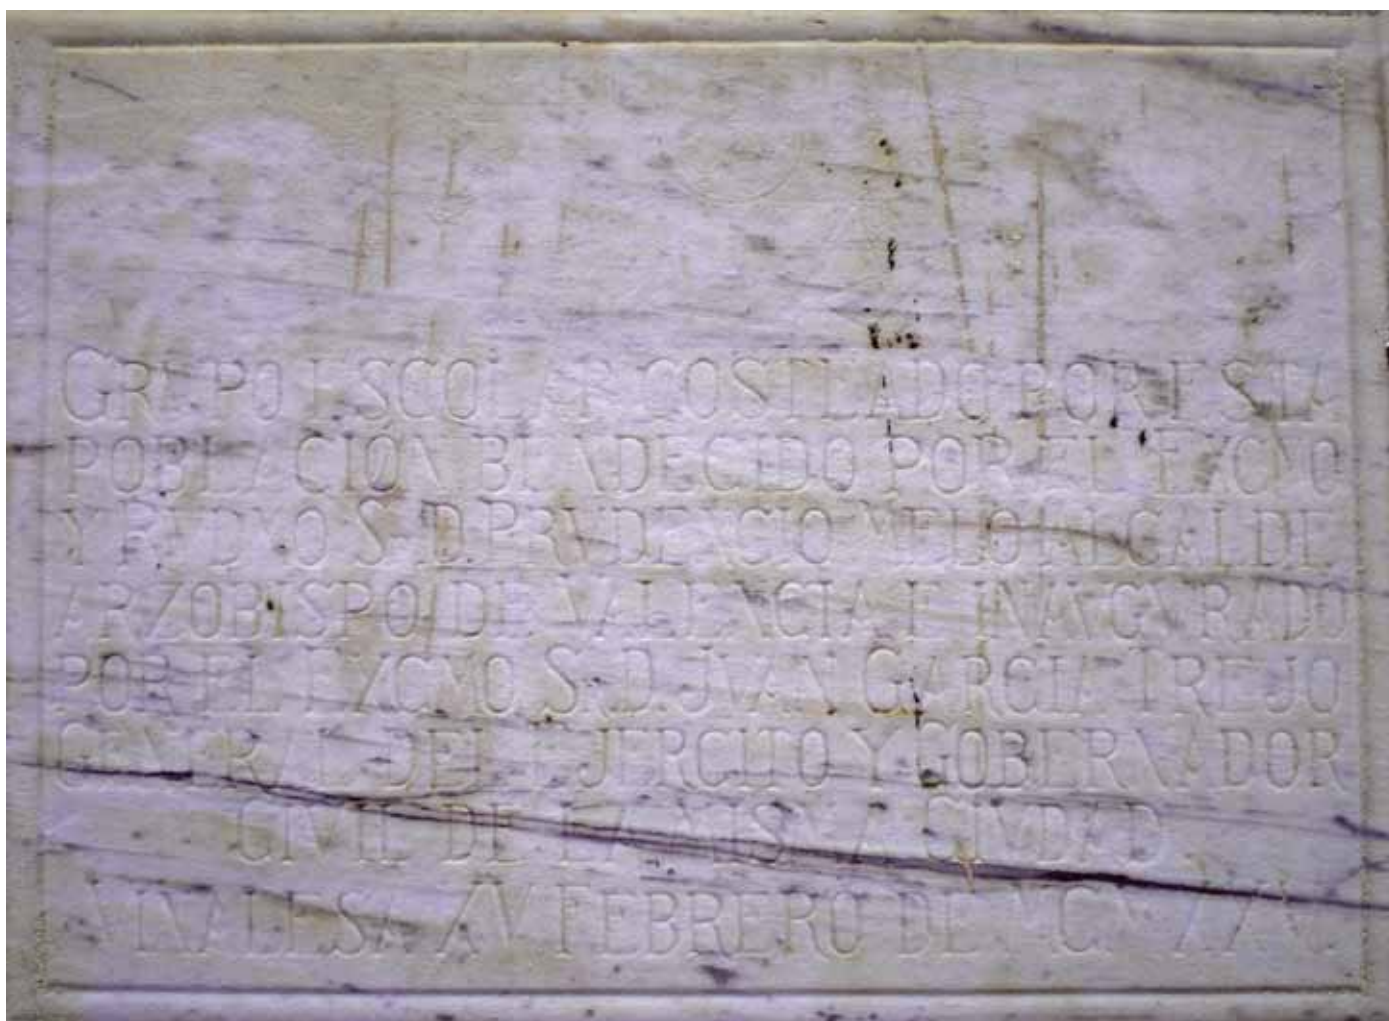 GRVPO ESCOLAR COSTEADO POR ESTA
POBLACION BENDECIDO POR EL EXCMO
Y RVDMO S. D. PRVDENCIO MELO ALCALDE
ARZOBISPO DE VALENCIA E INAVGVRADO
POR EL EXCMO S. D. JVAN GARCIA TREJO
GENERAL DEL EJERCITO Y GOBERNADOR
CIVIL DE LA MISMA CIVDAD.
VINALESA XV FEBRERO DE MCMXXV.